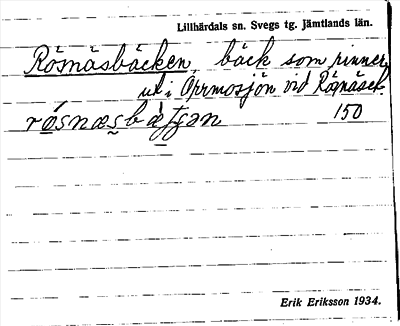 Lillhärdals sn. Svegs tg. Jämtlands län.
Rösnäsbäcken, bäck som rinner
ut i Öxmosjön vid Rösnäset.
rósnæsbæ̀ʃʃan 150
Erik Eriksson 1934.